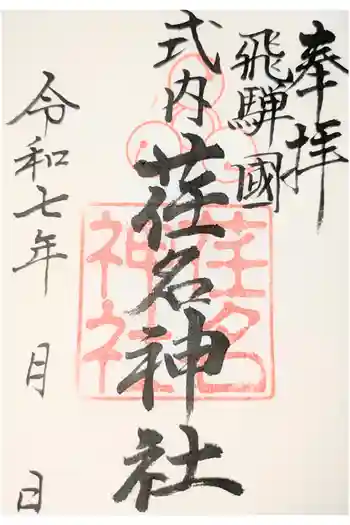 奉拝
飛騨國
式内
荏名神社
荏名
神社
令和七年 月 日